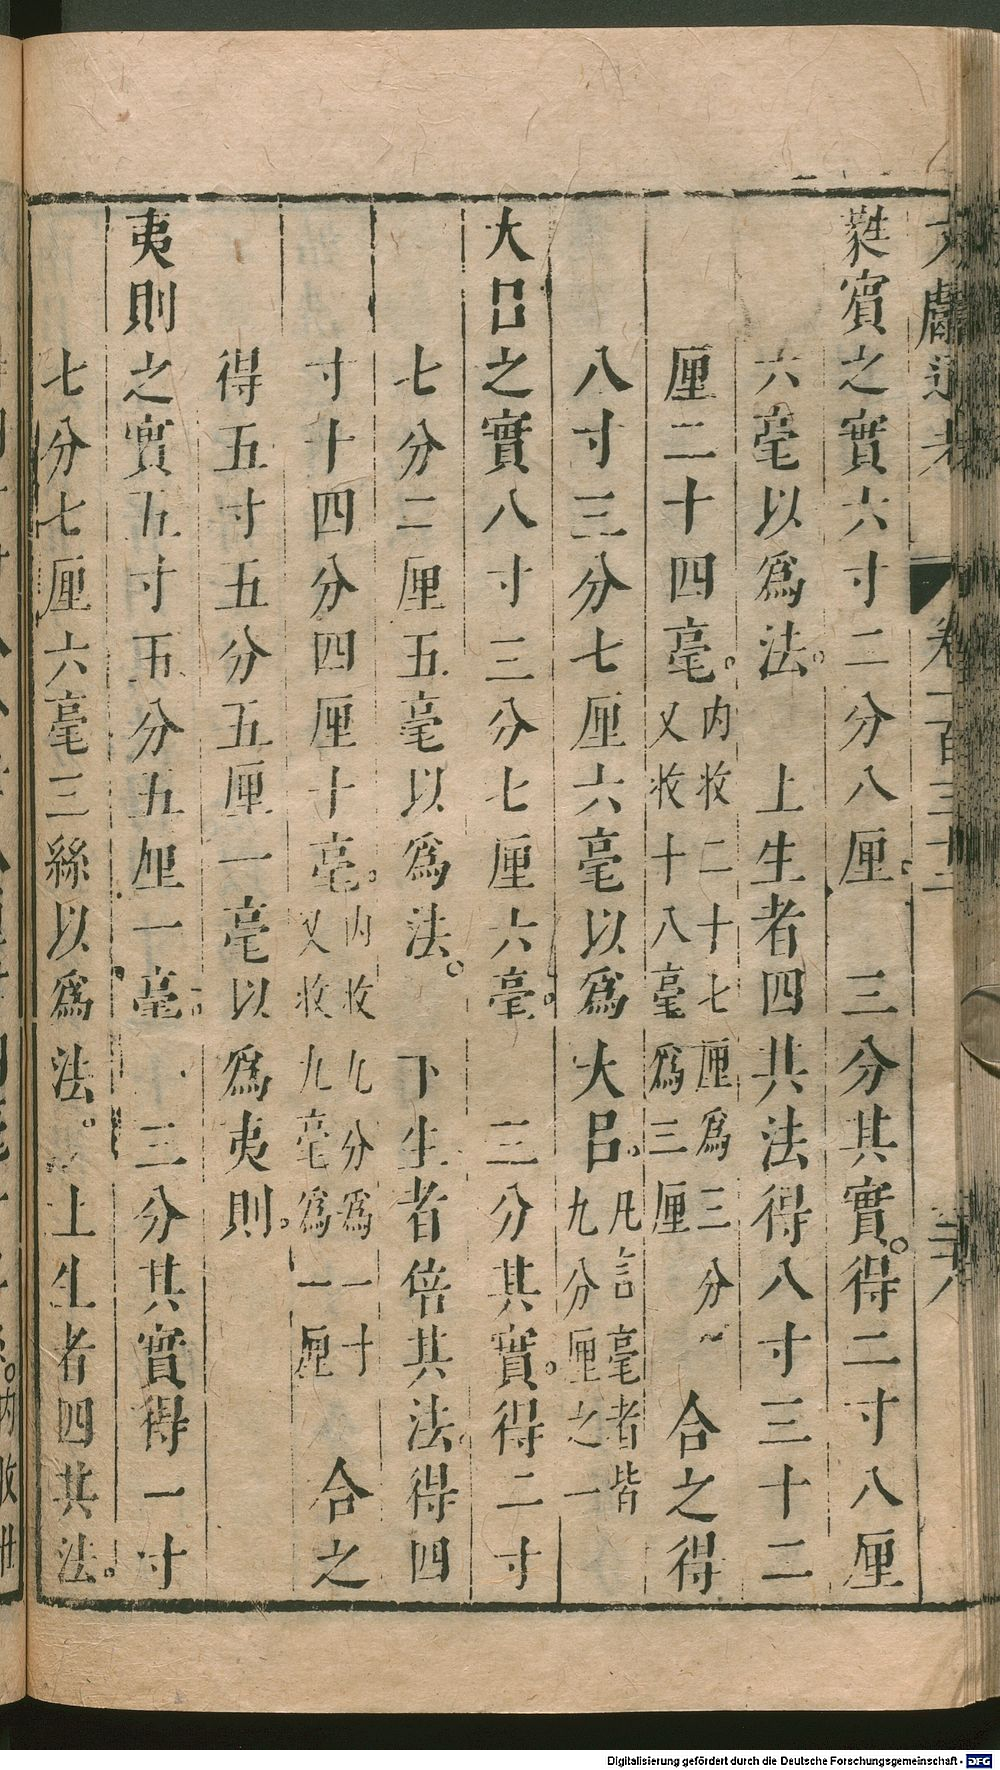 蕤賓之實六寸二分八厘。三分其實。得二寸八厘
六毫以爲法。上生者四其法得八寸三十二
厘二十四毫。内收二十七厘爲三分又收十八毫爲三厘合之得
八寸三分七厘六毫以爲大呂。凡言毫者皆九分厘之一
大呂之實八寸三分七厘六毫。三分其實。得二寸
七分二厘五毫以爲法。下生者倍其法。得四
寸十四分四厘十毫。内收九分爲一寸又收九毫爲一厘合之
得五寸五分五厘一毫以爲夷則。
夷則之實五寸五分五厘一毫。三分其實得一寸
七分七厘六毫三絲以爲法。上生者四其法。
Digitalisierung gefördert durch die Deutsche Forschungsgemeinschaft - DFG